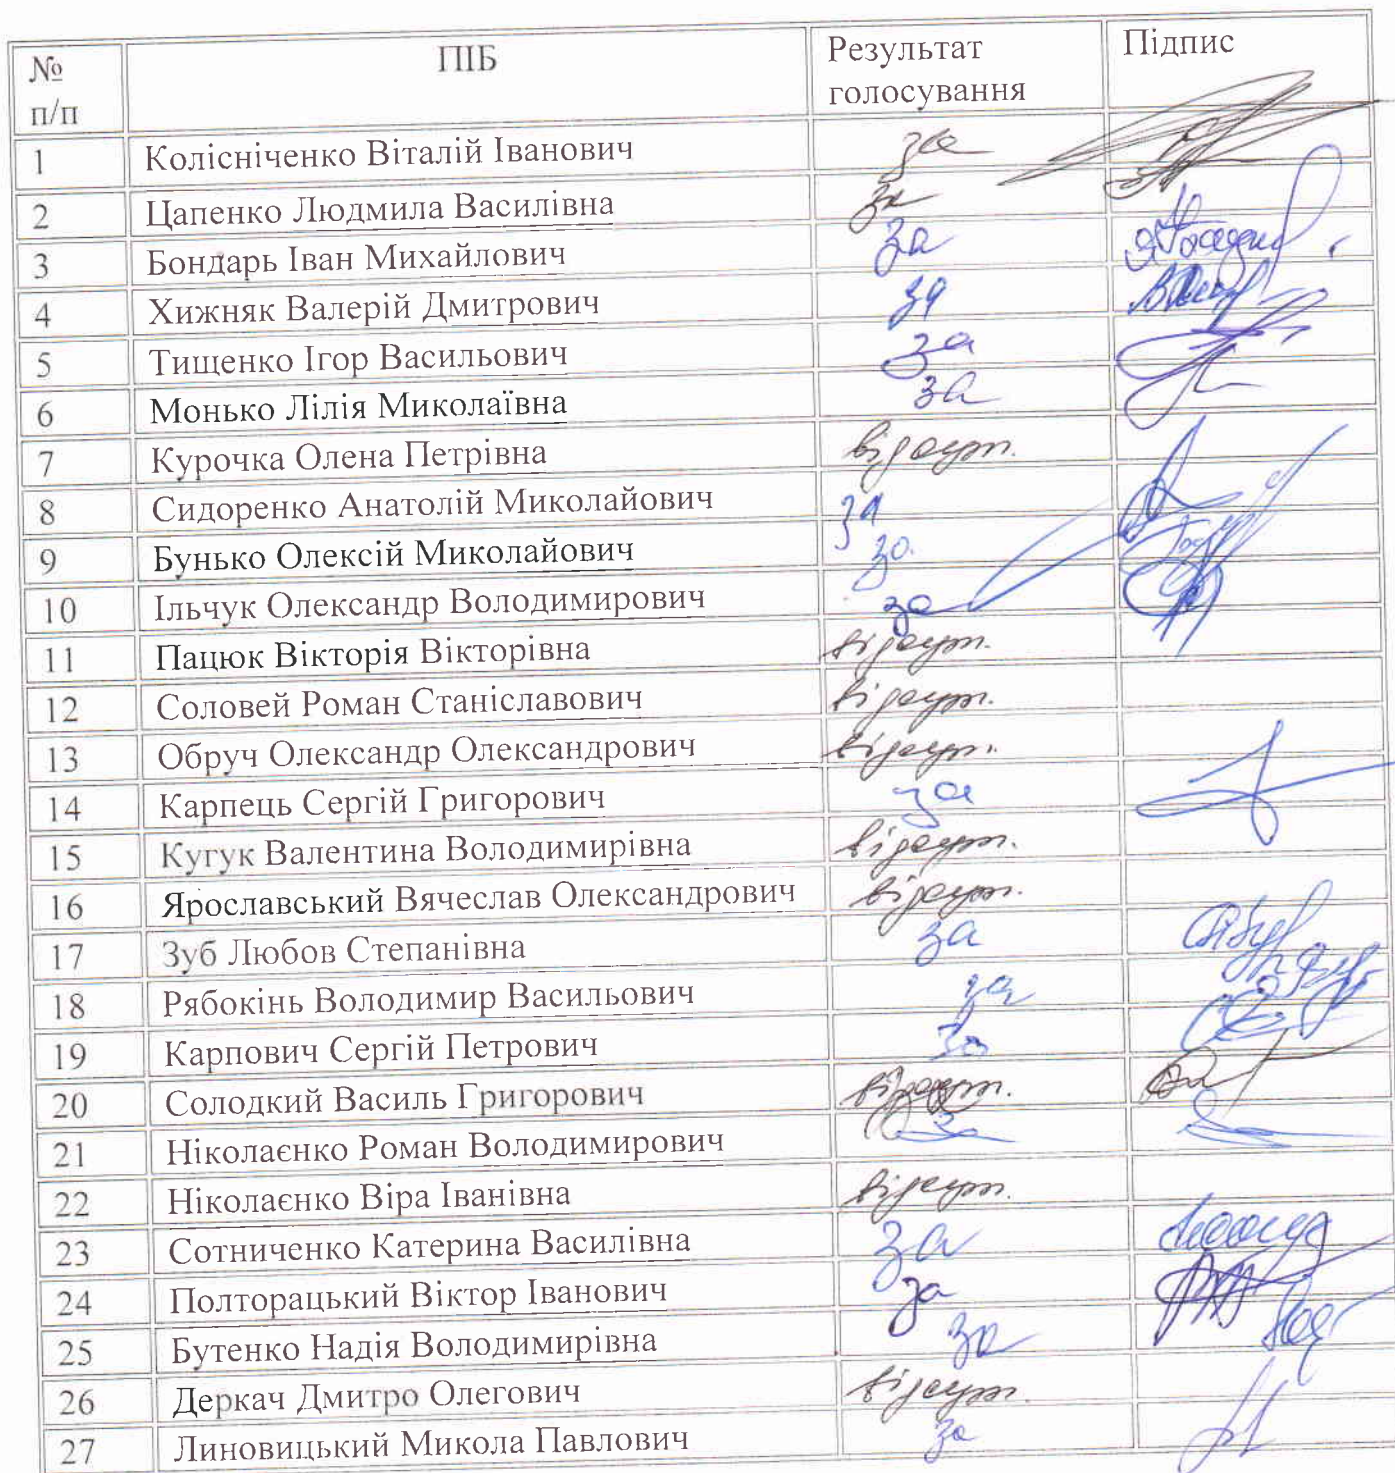 № п/п ПІБ Результат голосування Підпис
1 Колісніченко Віталій Іванович за
2 Цапенко Людмила Василівна за
3 Бондарь Іван Михайлович за
4 Хижняк Валерій Дмитрович за
5 Тищенко Ігор Васильович за
6 Монько Лілія Миколаївна за
7 Курочка Олена Петрівна відсут.
8 Сидоренко Анатолій Миколайович за
9 Бунько Олексій Миколайович за
10 Ільчук Олександр Володимирович за
11 Пацюк Вікторія Вікторівна відсут.
12 Соловей Роман Станіславович відсут.
13 Обруч Олександр Олександрович відсут.
14 Карпець Сергій Григорович за
15 Кугук Валентина Володимирівна відсут.
16 Ярославський Вячеслав Олександрович відсут.
17 Зуб Любов Степанівна за
18 Рябокінь Володимир Васильович за
19 Карпович Сергій Петрович за
20 Солодкий Василь Григорович відсут.
21 Ніколаєнко Роман Володимирович за
22 Ніколаєнко Віра Іванівна відсут.
23 Сотниченко Катерина Василівна за
24 Полторацький Віктор Іванович за
25 Бутенко Надія Володимирівна за
26 Деркач Дмитро Олегович відсут.
27 Линовицький Микола Павлович за